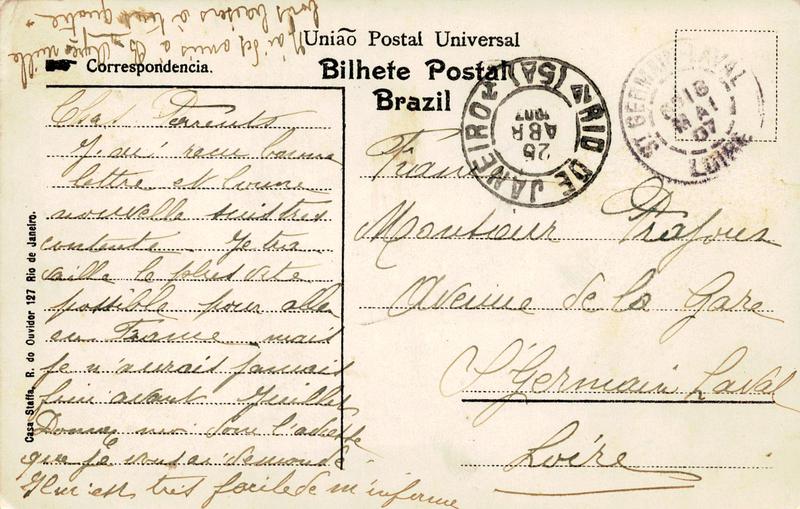 União Postal Universal
Correspondencia.
Bilhete Postal
Brazil
RIO DE JANEIRO (SA)
26
ABR
1907
ST GERMAIN LAVAL
18
MAI
07
LOIRE
Chers Parents
J'ai recu bonne
lettre et bonne
nouvelle suis tres
contente. Je tra
vaille le plus vite
possible pour aller
en France mais
je n'aurais jamais
fini avant Juillet
Donnes moi donc l'adresse
que je vous ai demandé
Il lui est très facile de m'informe
mille
bons baisers à tous quatre
France
Monsieur Trafour
Avenue de la Gare
St Germain Laval
Loire
Casa Staffa, R. do Ouvidor 127 Rio de Janeiro.